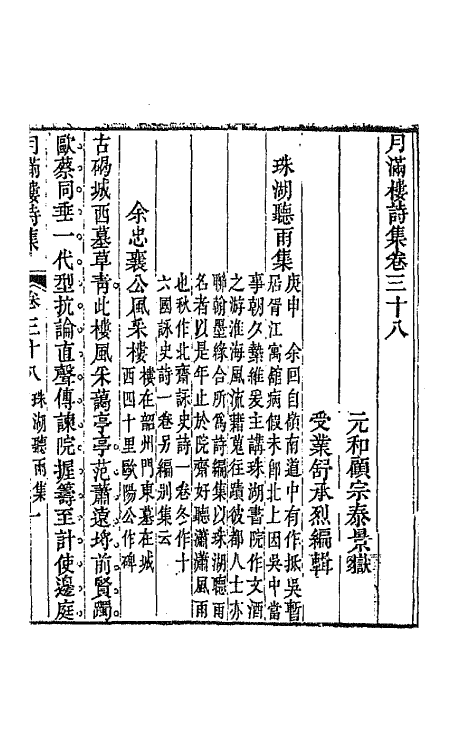 月滿樓詩集卷三十八
元和顧宗泰景嶽
受業舒承烈編輯
珠湖聽雨集
庚申余回自嶺南道中有作抵吳暫
居胥江寓館病假未即北上因吳中當
事朝久縶維爰主講珠湖書院作文酒
之游淮海風流藉蒐往蹟彼都人士亦
聯翰墨緣合所為詩編集以珠湖聽雨
名者以是年止於院齋好聽瀟瀟風雨
也秋作北齋詠史詩一卷冬作十
六國詠史詩一卷另編別集云
余忠襄公風采樓
樓在韶州門東墓在城
西四十里歐陽公作碑
古碣城西墓草青此樓風采藹亭亭范蕭遠埼前賢躅
歐蔡同垂一代型抗論直聲傳諫院握籌至計使邊庭
月滿樓詩集
卷三十八 珠湖聽雨集 一